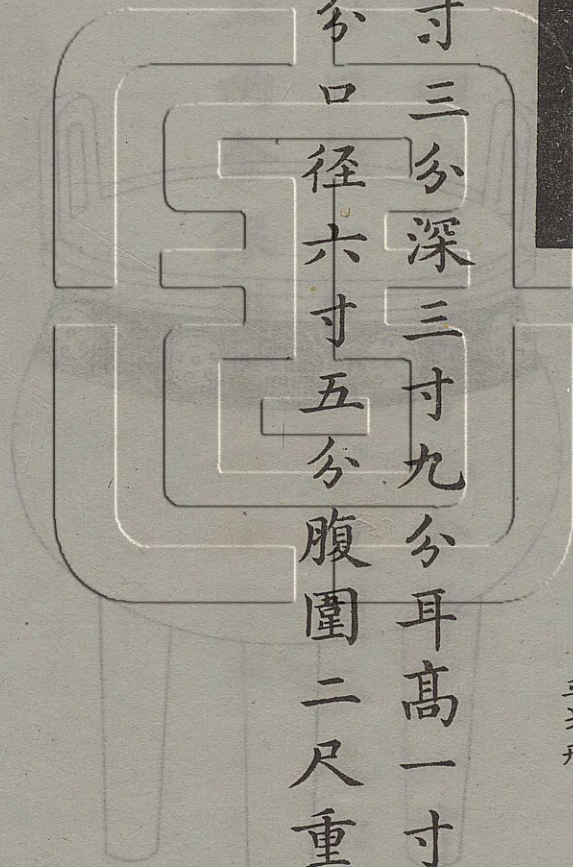 寸三分深三寸九分耳高一寸
分口径六寸五分腹圍二尺重